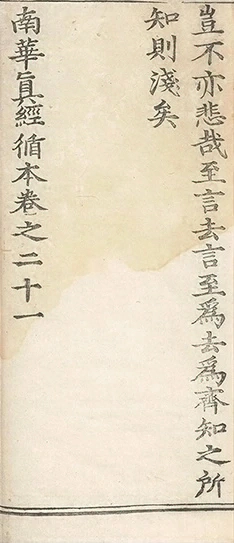 豈不亦悲哉至言去言至爲去爲齊知之所
知則淺矣
南華眞經循本卷之二十一